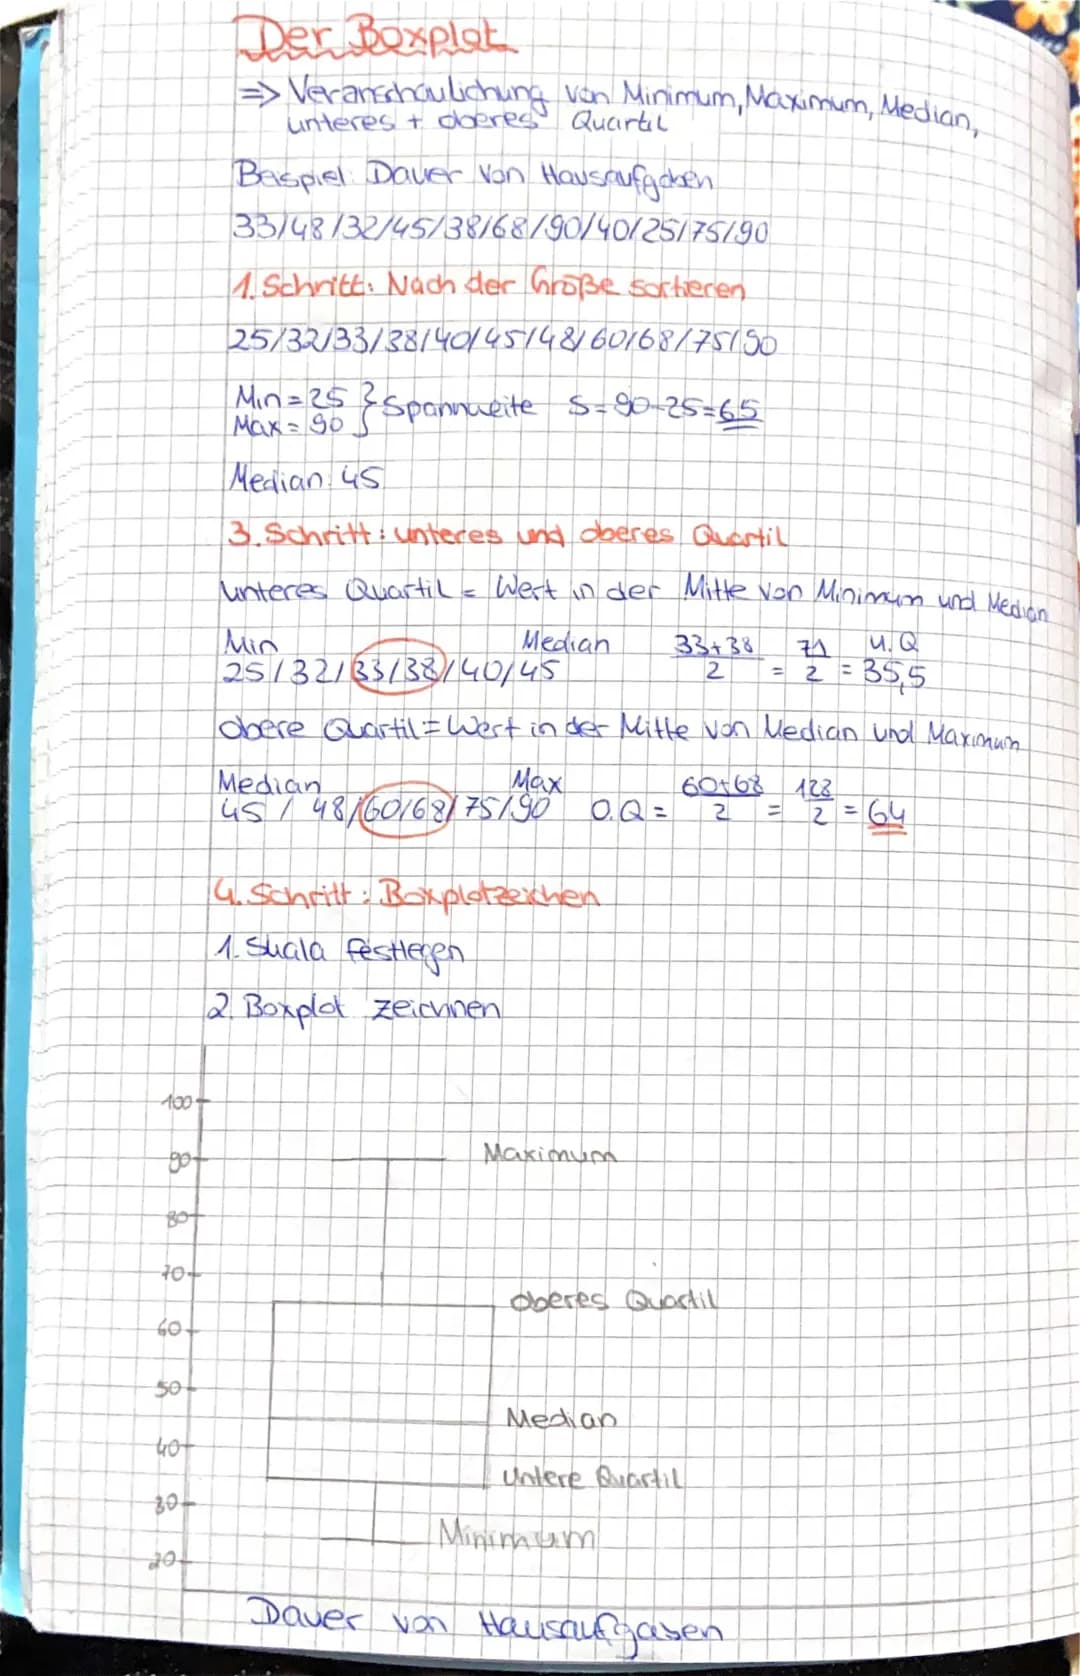 Der Boxplot
=> Veranschaulichung von Minimum, Maximum, Median,
unteres + oberes Quartil
Beispiel: Dauer von Hausaufgaben
33/48/32/45/38/68/90/40/25/75/90
1. Schritt: Nach der Größe sortieren
25/32/33/38/40/45/48/60/68/75/90
Min = 25 } Spannweite S = 90-25 = 65
Max = 90
Median: 45
3. Schritt: unteres und oberes Quartil
unteres Quartil = Wert in der Mitte von Minimum und Median
Min Median 33+38/2 = 71/2 = 35,5 u.Q
25/32/33/38/40/45
obere Quartil = Wert in der Mitte von Median und Maximum
Median Max
45/48/60/68/75/90 O.Q = 60+68/2 = 128/2 = 64
4. Schritt: Boxplotzeichen
1. Skala festlegen
2. Boxplot zeichnen
100
90 Maximum
80
70
oberes Quartil
60
50
Median
40
Untere Quartil
30
Minimum
20
Dauer von Hausaufgaben